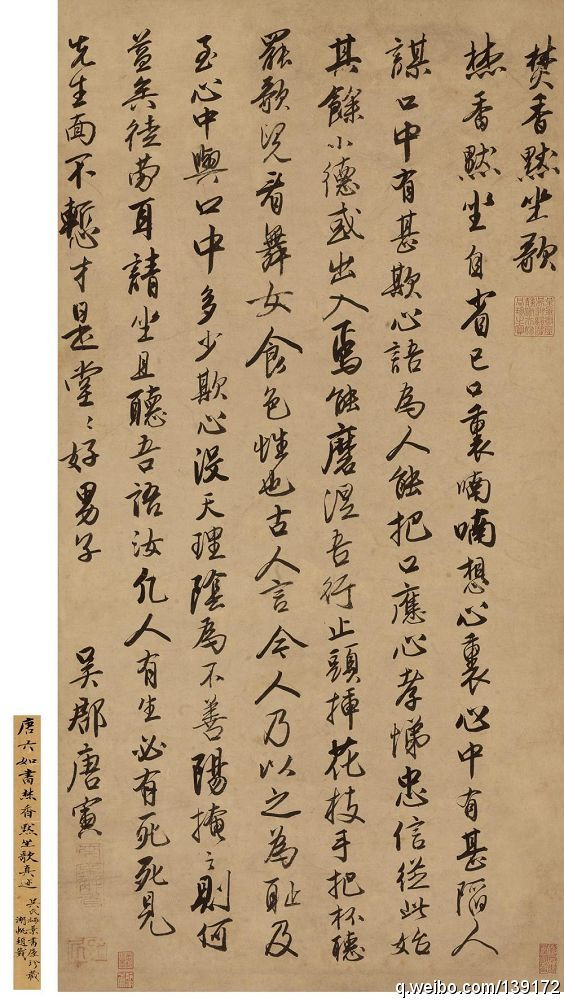 焚香默坐歌
焚香默坐自省己口裏喃喃想心裏心中有甚陷人
謀口中有甚欺心語為人能把口應心孝悌忠信從此始
其餘小德或出入焉能磨涅吾行止頭插花枝手把杯聽
罷歌兒看舞女食色性也古人言今人乃以之為恥及
至心中與口中多少欺心沒天理陰為不善陽掩之則何
益矣徒勞耳請坐且聽吾語汝凡人有生必有死死見
先生面不慙才是堂〻好男子
吳郡唐寅
唐六如書焚香默坐歌真迹
吳氏梅景書屋珍藏
湖帆題籤
q.weibo.com/139172